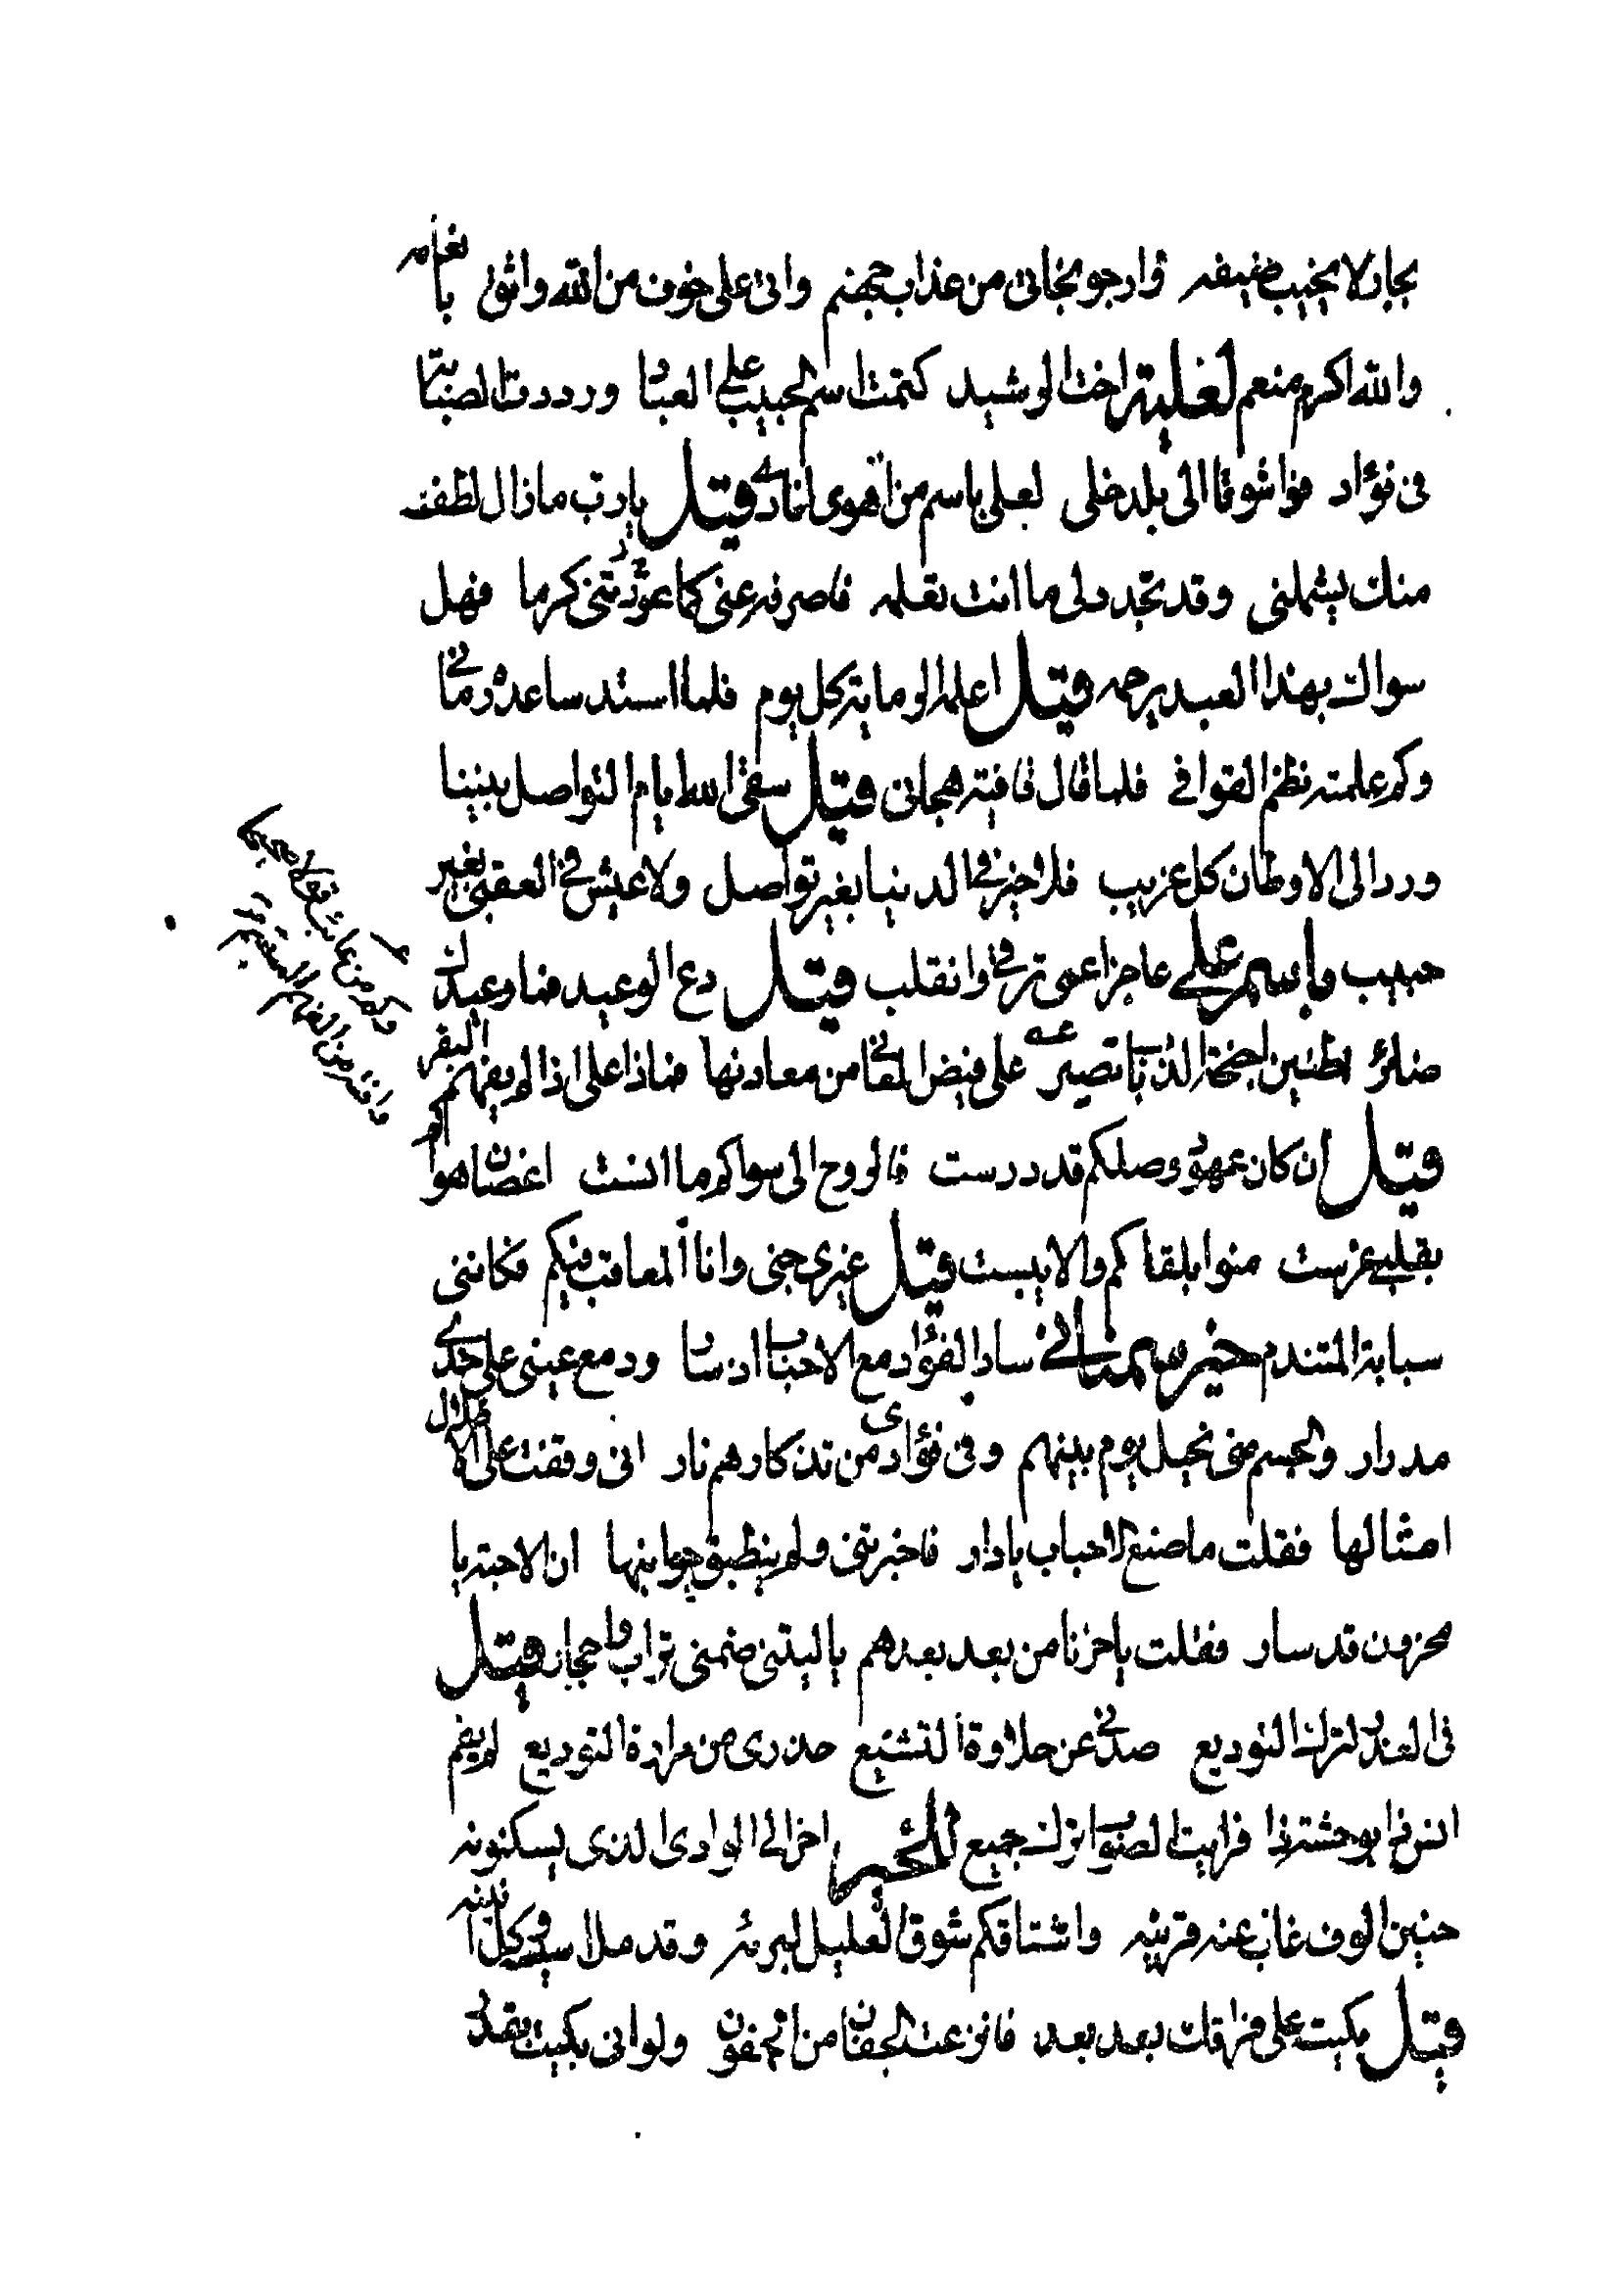 بجار لا يخيب ضيفه وارجو نجاتى من عذاب جهنم وانى على خوف من الله واثق بانعامه
والله اكرم منعم لعلية اخت الرشيد كتمت اسم الحبيب على العباد ورددت الصبابة
فى فؤاد فواشوقا الى بلد خلى لعلى باسم من اهوى انادى قيل يارب ما زال لطف
منك يشملنى وقد تجدد لى ما انت تعلمه فاصرفه عنى كما عودتنى كرما فهل
سواك بهذا العبد يرحمه قيل اعلمه الرماية كل يوم فلما استد ساعده رمانى
وكم علمته نظم القوافى فلما قال قافية هجانى قيل سقى الله ايام التواصل بيننا
ورد الى الاوطان كل غريب فلا خير فى الدنيا بغير تواصل ولا عيش فى العقبى بغير
حبيب وانقلب قيل دع الوعيد فما وعيدك
ضائر اطنين اجنحة الذباب تصير على فيض المعانى من معادنها فماذا على اذا لم يفهم البقر
قيل ان كان عهود وصلكم قد درست فالروح الى سواكم ما انست اغصان هواكم
بقلبى غرست منوا بلقاكم والا يبست قيل غيرى جنى وانا المعاقب فيكم فكاننى
سبابة المتندم سار الفؤاد مع الاحباب اذ ساروا ودمع عينى على خدى
مدرار والجسم منى نحيل يوم بينهم وفى فؤادى من تذكارهم نار انى وقفت على الاطلال
اسالها فقلت ما صنع الاحباب يا دار فاخبرتنى ولم ينطبق جوابها ان الاحبة يا
محزون قد ساروا فقلت يا حزنا من بعد بعدهم يا ليتنى ضمنى تراب واحجار قيل
فى العذر لترك التوديع صدنى عن حلاوة التشييع حذرى من مرارة التوديع لم يقم
انس ذا بوحشة ذا فرايت الصواب ترك جميع احن الى الوادى الذى يسكنونه
حنين الوف غاب عنه قرينه واشتاقكم شوق العليل لبرئه وقد مل
قيل بكيت على فراقك بعد بعد من الجفون ولو انى بكيت بقدر